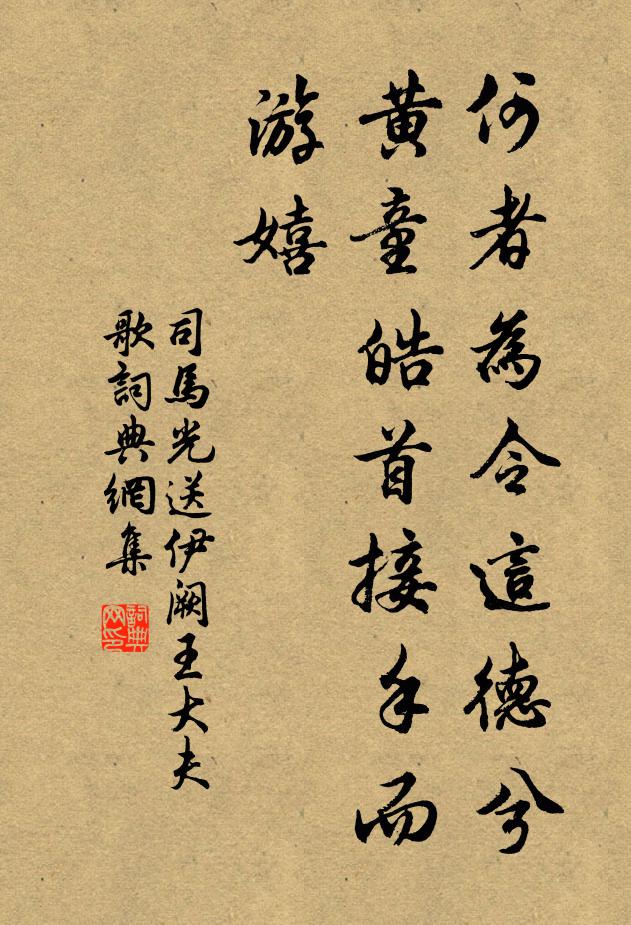 何者為令這德兮
黃童皓首接手而
游嬉
司馬光送伊闕王大夫
歌詞典網集
詞典網印